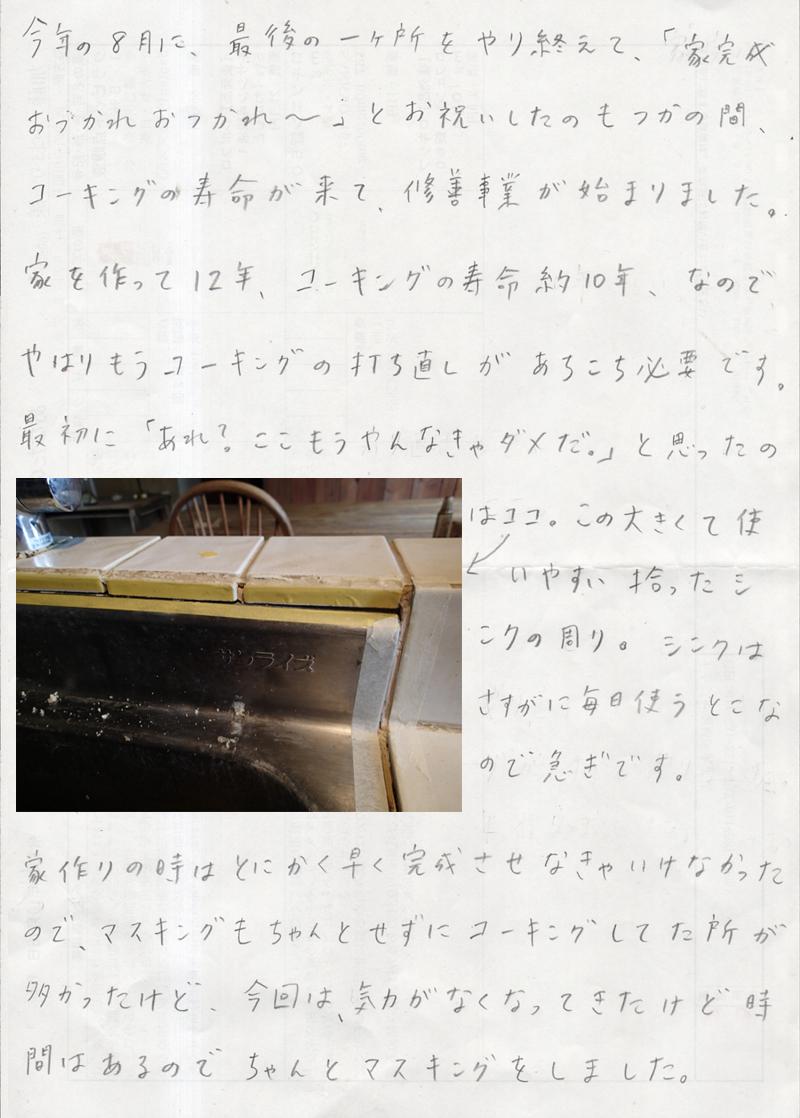 今年の8月に、最後の一ヶ所をやり終えて、「家完成
おづかれおつかれ〜」とお祝いしたのもつかの間、
コーキングの寿命が来て、修善事業が始まりました。
家を作って12年、コーキングの寿命約10年、なので
やはりもうコーキングの打ち直しがあちこち必要です。
最初に「あれ?ここもうやんなきゃダメだ。」と思ったの
はココ。この大きくて使
いやすい拾ったシ
ンクの周り。シンクは
さすがに毎日使うとこな
ので急ぎです。
サンライズ
家作りの時はとにかく早く完成させなきゃいけなかった
ので、マスキングもちゃんとせずにコーキングしてた所が
多かったけど、今回は、気力がなくなってきたけど時
間はあるのでちゃんとマスキングをしました。